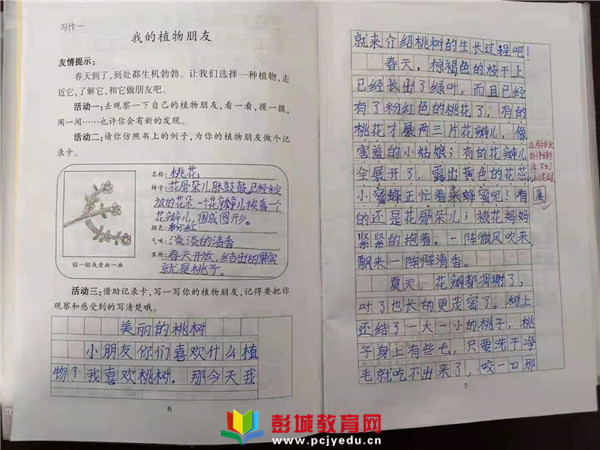 习作一
我的植物朋友
友情提示:
春天到了,到处都生机勃勃。让我们选择一种植物,走
近它,了解它,和它做朋友吧。
活动一:去观察一下自己的植物朋友,看一看,摸一摸,
闻一闻……也许你会有新的发现。
活动二:请你仿照书上的例子,为你的植物朋友做个记
录卡。
名称:桃花
样子:花骨朵儿胀鼓鼓,已经绽
放的花朵一个花瓣儿挨着一个
花瓣儿,围成圆形。
颜色:粉红
气味:淡淡的清香
其他:春天开放,结出的果实
就是桃子。
贴一贴或者画一画
活动三:借助记录卡,写一写你的植物朋友,记得要把你
观察和感受到的写清楚哦。
美丽的桃树
小朋友你们喜欢什么植
物?我喜欢桃树。那今天我
6
就来介绍桃树的生长过程吧!
春天,棕褐色的枝干上
已经长出了绿叶,而且已经
有了粉红色的桃花了,有的
桃花才展两三片花瓣儿,像
害羞的小姑娘;有的花瓣儿
全展开了,露出黄色的花蕊,
小蜜蜂正忙着采蜂蜜呢!有
展
的还是花骨朵儿;被花妈妈
紧紧的抱着。一阵微风吹来,
飘来一阵阵清香。
夏天,花瓣都凋谢了,
叶子也长的更茂密了。树上
还结了一大一小的桃子,桃
子身上有些毛,只要洗干净
毛就吃不出来了,咬一口那
7
彭城教育网
www.pcjyedu.cn